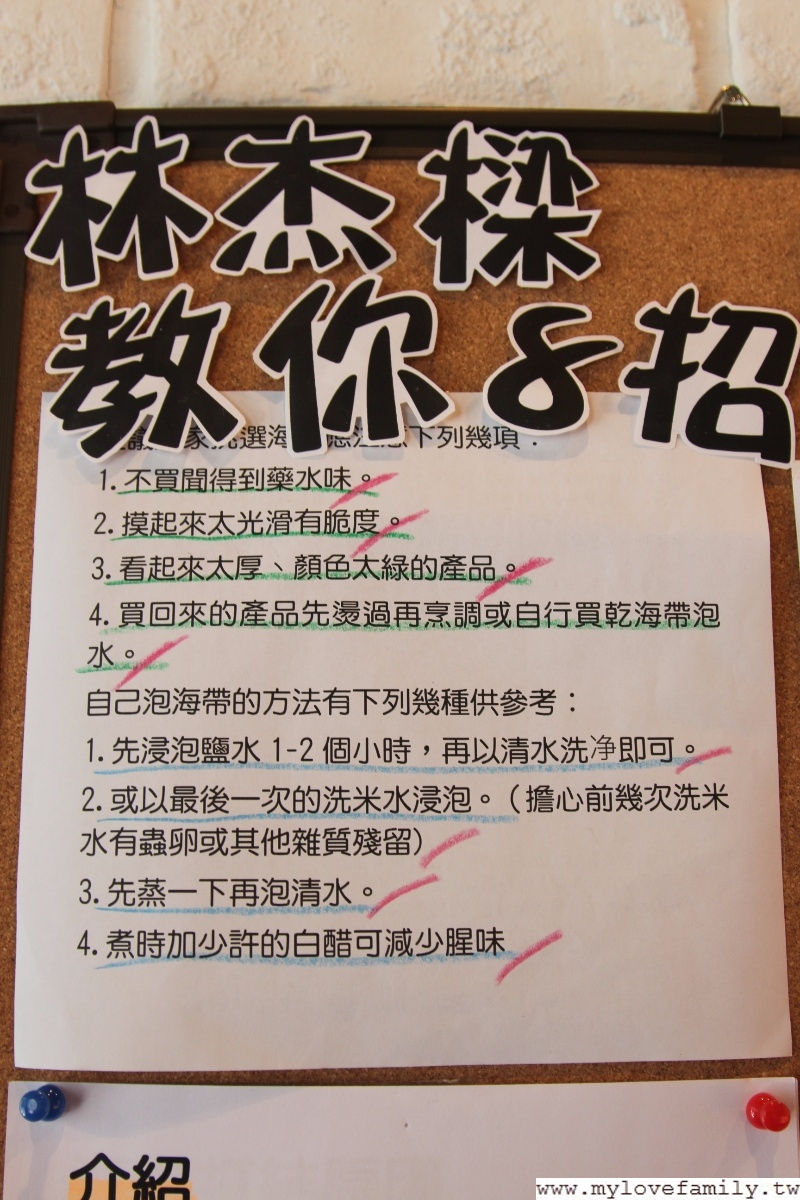 林杰樑
教你8招
家挑選海 下列幾項：
1.不買聞得到藥水味。
2.摸起來太光滑有脆度。
3.看起來太厚、顏色太綠的產品。
4.買回來的產品先燙過再烹調或自行買乾海帶泡
水。
自己泡海帶的方法有下列幾種供參考：
1.先浸泡鹽水 1-2 個小時，再以清水洗净即可。
2.或以最後一次的洗米水浸泡。（擔心前幾次洗米
水有蟲卵或其他雜質殘留）
3.先蒸一下再泡清水。
4.煮時加少許的白醋可減少腥味
介紹
www.mylovefamily.tw